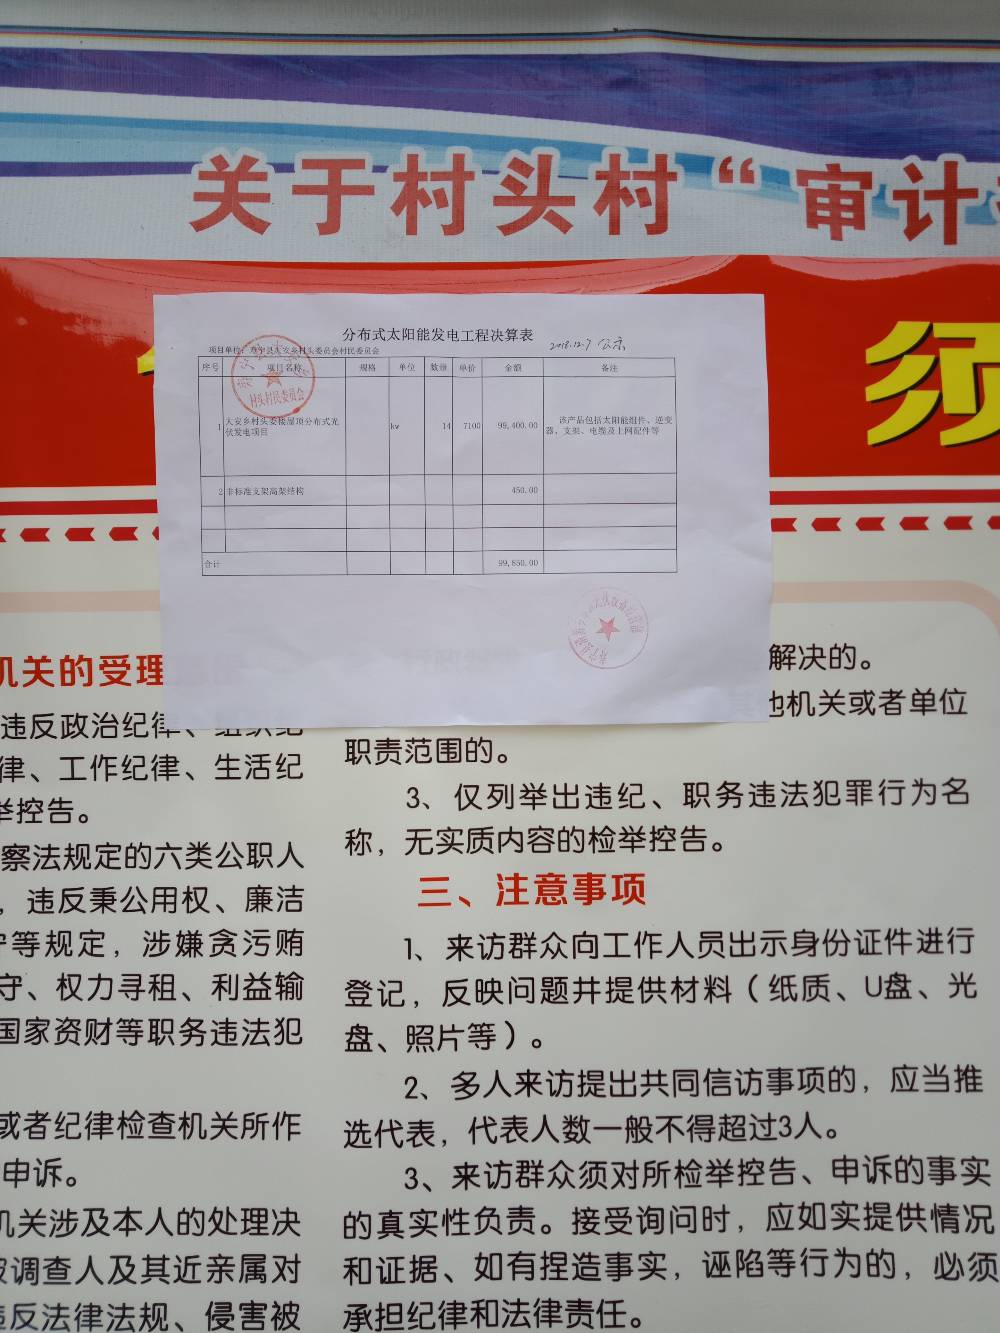 关于村头村“审计
须
分布式太阳能发电工程决算表
2018.12.7 公示
项目单位：寿宁县大安乡村头委员会村民委员会
序号 项目名称 规格 单位 数量 单价 金额 备注
1 大安乡村头委楼屋顶分布式光伏发电项目 kw 14 7100 99,400.00 该产品包括太阳能组件、逆变器、支架、电缆及上网配件等
2 非标准支架高架结构 450.00
合计 99,850.00
村头村民委员会
机关的受理
违反政治纪律、组织纪
律、工作纪律、生活纪
举控告。
察法规定的六类公职人
，违反秉公用权、廉洁
守等规定，涉嫌贪污贿
守、权力寻租、利益输
国家资财等职务违法犯
或者纪律检查机关所作
申诉。
机关涉及本人的处理决
被调查人及其近亲属对
违反法律法规、侵害被
解决的。
其他机关或者单位
职责范围的。
3、仅列举出违纪、职务违法犯罪行为名
称，无实质内容的检举控告。
三、注意事项
1、来访群众向工作人员出示身份证件进行
登记，反映问题并提供材料（纸质、U盘、光
盘、照片等）。
2、多人来访提出共同信访事项的，应当推
选代表，代表人数一般不得超过3人。
3、来访群众须对所检举控告、申诉的事实
的真实性负责。接受询问时，应如实提供情况
和证据、如有捏造事实，诬陷等行为的，必须
承担纪律和法律责任。